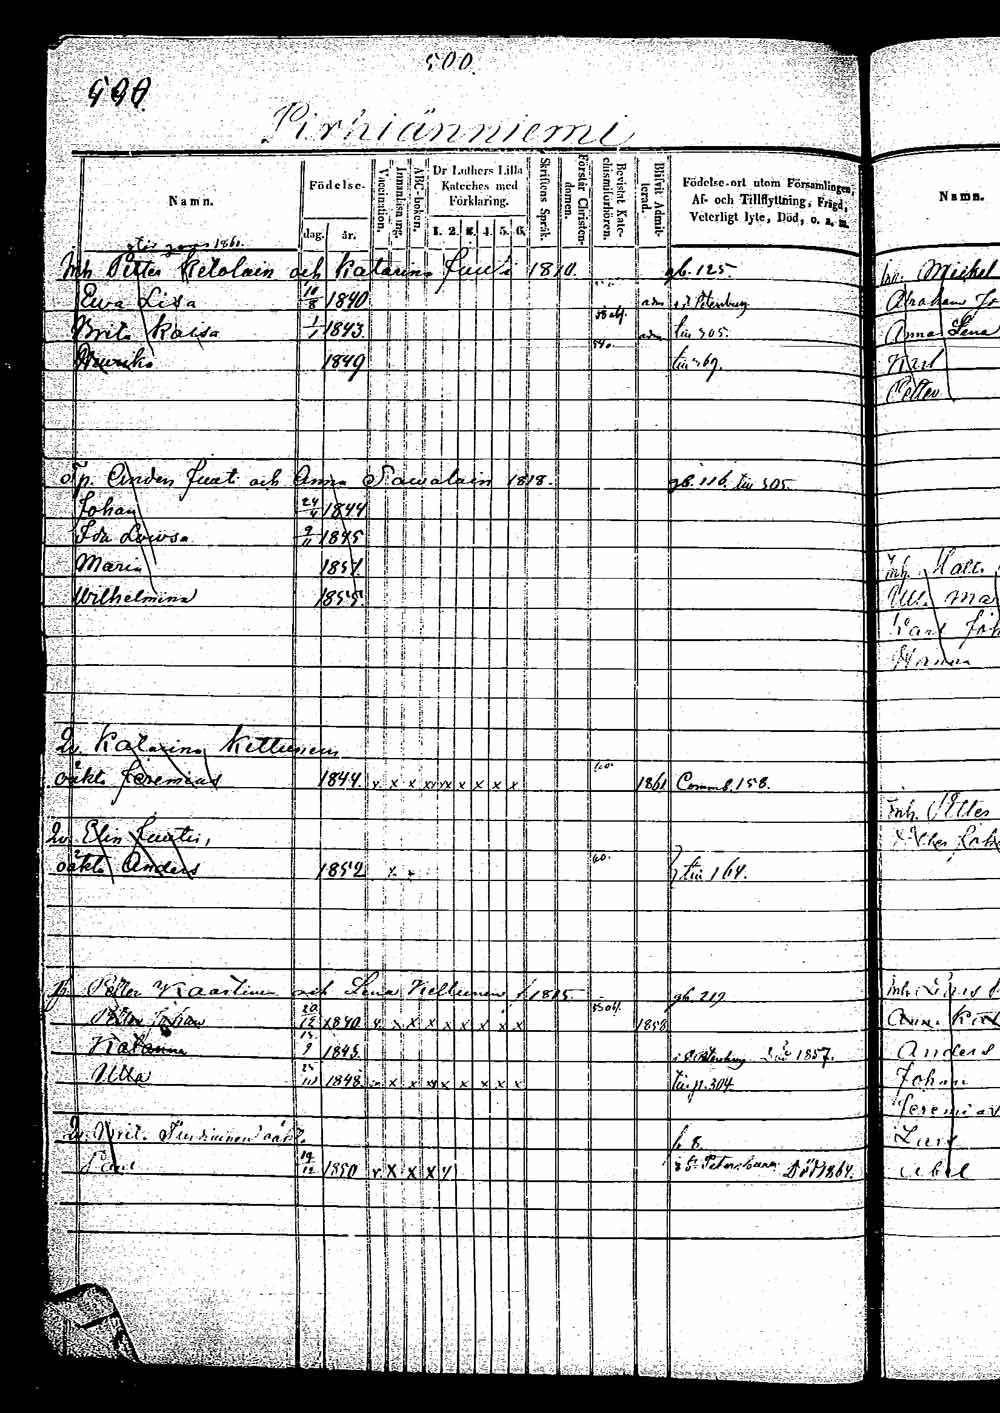 500.
500
Pirhiänniemi
Namn.
Födelse-
dag.
år.
Vaccination.
Innanläsning.
ABC-boken.
Dr Luthers Lilla Kateches med Förklaring.
1. 2. 3. 4. 5. 6.
Skriftens Språk.
Förstår Christendomen.
Bevistat Katechismiförhören.
Blifvit Admitterad.
Födelse-ort utom Församlingen, Af- och Tillflyttning, Frigd, Veterligt lyte, Död, o. a. m.
Namn.
1861.
Inh. Petter Ketolain och Katarina Juuti 1810. gb. 125.
Ewa Lisa 10/8 1840. adm i St Petersburg
Brita Kaisa 1/1 1843. adm till 305.
Henrik 1849 till 369.
Tp. Anders Juuti och Anna Sawolain 1818. gb. 116. till 305.
Johan 24/4 1844
Ida Lowisa 9/11 1845
Maria 1851.
Wilhelmina 1855.
Qv. Katarina Kettunen
oäkta Jeremias 1844. v x x x x x x x x 1861 Comms. 158.
Qv. Elin Juuti,
oäkta Anders 1852 x x 60. till 164.
Petter Kaartinen och Lena Kettunen 1815. gb 219
Petter Johan 20/12 1840 v x x x x x x x x 1858
Katarina 9 1845. i St. Petersburg Död 1857.
Ulla 1848. x x x x x x x x till p. 304
Qv. Brit. oäkt. b. 8.
Paul 19/12 1850 v x x x i St. Petersburg Död 1864.
Inh. Mickel
Abraham Jo
Anna Lena
Karl
Petter
Inh. Matt.
Ul. Ma
Karl Joh
Hanna
Inh. Petter
Inh. Lars
Ann. Kat
Anders
Johan
Jeremias
Lars
Abel